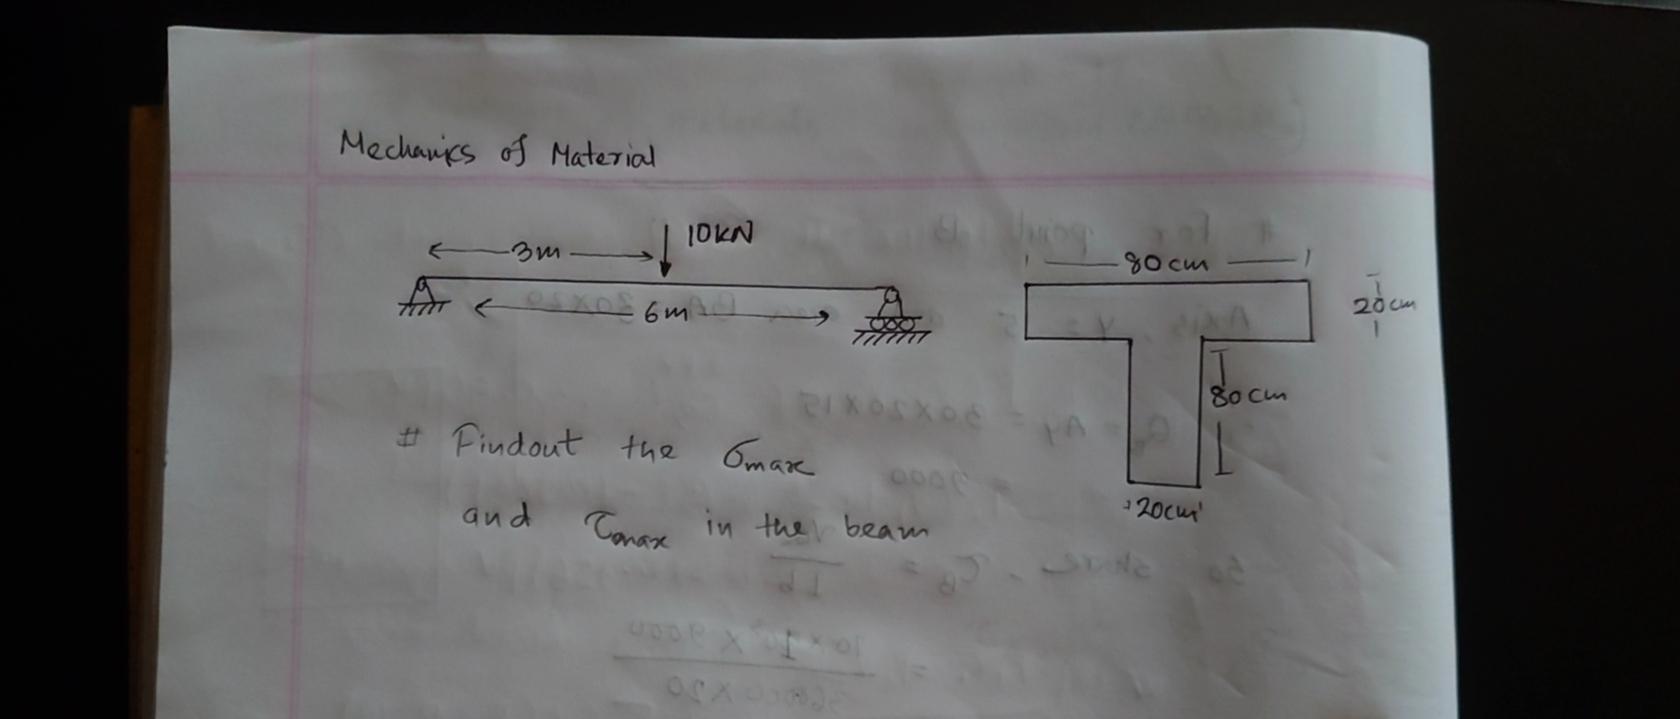 Mechanics of Material
3m
10kN
6m
80cm
20cm
80cm
20cm
# Findout the σmax
and τmax in the beam